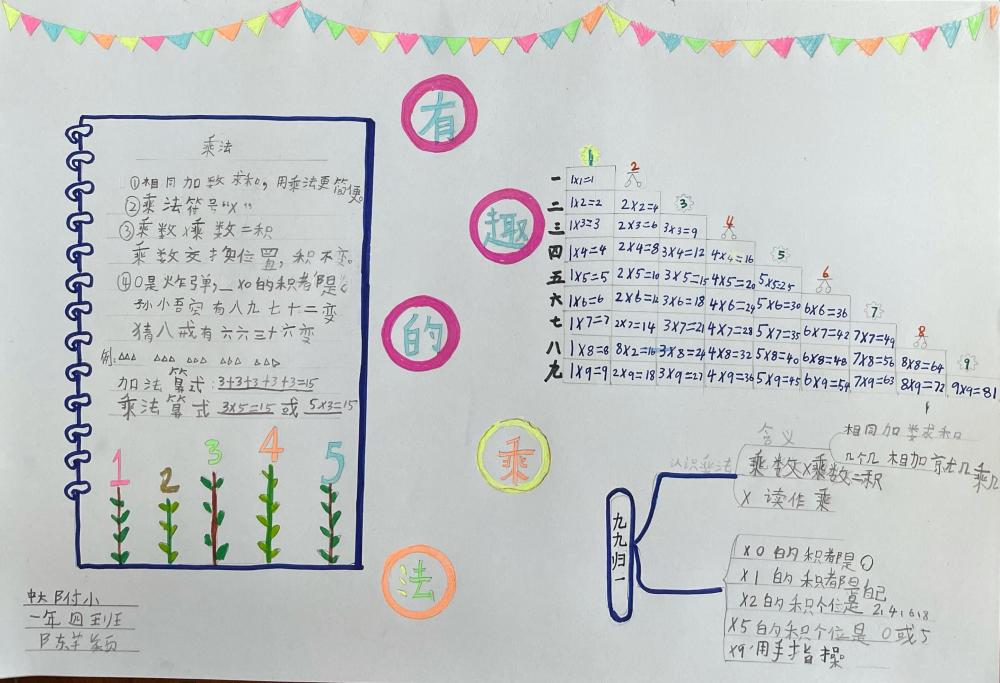 有
趣
的
乘
法
乘法
①相同加数求和,用乘法更简便。
②乘法符号“×”
③乘数×乘数=积
乘数交换位置,积不变。
④0是炸弹,_×0的积都是0
孙小吾空有八九七十二变
猜八戒有六六三十六变
例:△△△ △△△ △△△ △△△ △△△
加法算式:3+3+3+3+3=15
乘法算式 3×5=15或 5×3=15
1 2 3 4 5
一年四班
1 2 3 4 5 6 7 8 9
一 1×1=1
二 1×2=2 2×2=4
三 1×3=3 2×3=6 3×3=9
四 1×4=4 2×4=8 3×4=12 4×4=16
五 1×5=5 2×5=10 3×5=15 4×5=20 5×5=25
六 1×6=6 2×6=12 3×6=18 4×6=24 5×6=30 6×6=36
七 1×7=7 2×7=14 3×7=21 4×7=28 5×7=35 6×7=42 7×7=49
八 1×8=8 8×2=16 3×8=24 4×8=32 5×8=40 6×8=48 7×8=56 8×8=64
九 1×9=9 2×9=18 3×9=27 4×9=36 5×9=45 6×9=54 7×9=63 8×9=72 9×9=81
九九归一
认识乘法
含义
相同加数求和
几个几相加就是几乘几
乘数×乘数=积
× 读作 乘
×0的积都是0
×1的积都是自己
×2的积个位是 2,4,6,8
×5的积个位是 0或5
×9:用手指操